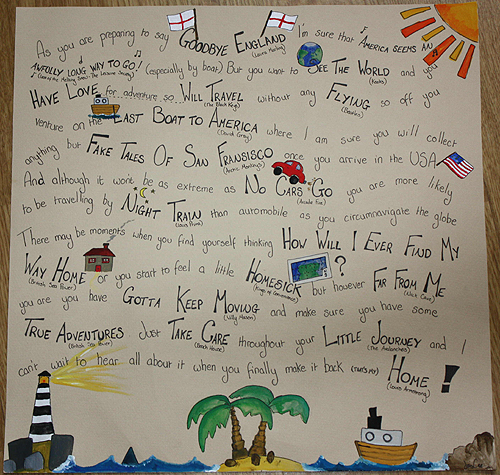 As you are preparing to say GOODBYE ENGLAND (Laura Marling) I'm sure that AMERICA SEEMS AN
AWFULLY LONG WAY TO GO! (especially by boat) But you want to SEE THE WORLD (Kooks) and you
HAVE LOVE for adventure so WILL TRAVEL (The Black Keys) without any FLYING (Beatles) so off you
venture on the LAST BOAT TO AMERICA (David Gray) where I am sure you will collect
anything but FAKE TALES OF SAN FRANSISCO (Arctic Monkeys) once you arrive in the USA
And although it won't be as extreme as NO CARS GO (Arcade Fire) you are more likely
to be travelling by NIGHT TRAIN (Louis Prima) than automobile as you circumnavigate the globe
There may be moments when you find yourself thinking HOW WILL I EVER FIND MY
WAY HOME (British Sea Power) ? or you start to feel a little HOMESICK (Kings of Convenience) but however FAR FROM ME (Nick Cave)
you are you have GOTTA KEEP MOVING (Willy Mason) and make sure you have some
TRUE ADVENTURES (British Sea Power) Just TAKE CARE (Beach House) throughout your LITTLE JOURNEY (The Avalanches) and I
can't wait to hear all about it when you finally make it back (that's my) HOME (Louis Armstrong) !